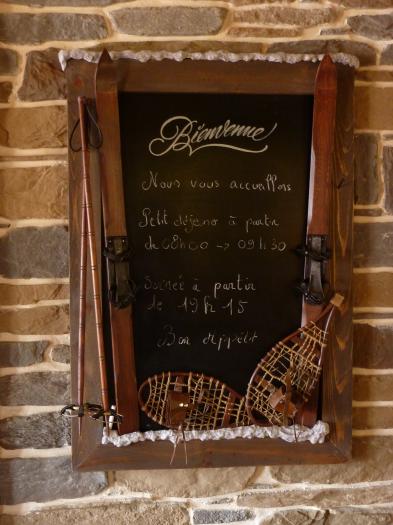 Bienvenue
Nous vous accueillons
Petit déjeno à partir
de 08h00 -> 09h30
Soirée à partir
de 19h15
Bon Appétit